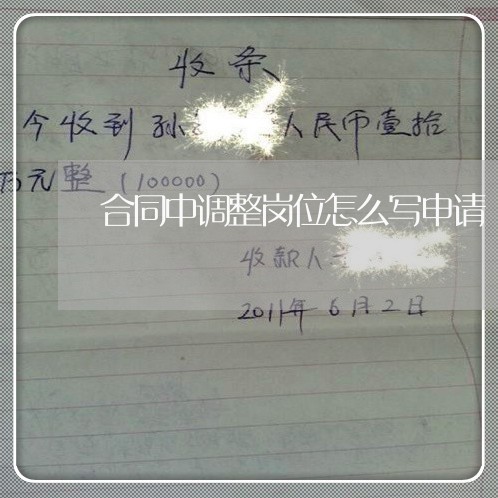 收条
今收到孙 人民币壹拾
万元整(100000)
合同中调整岗位怎么写申请
收款人
2011年6月2日